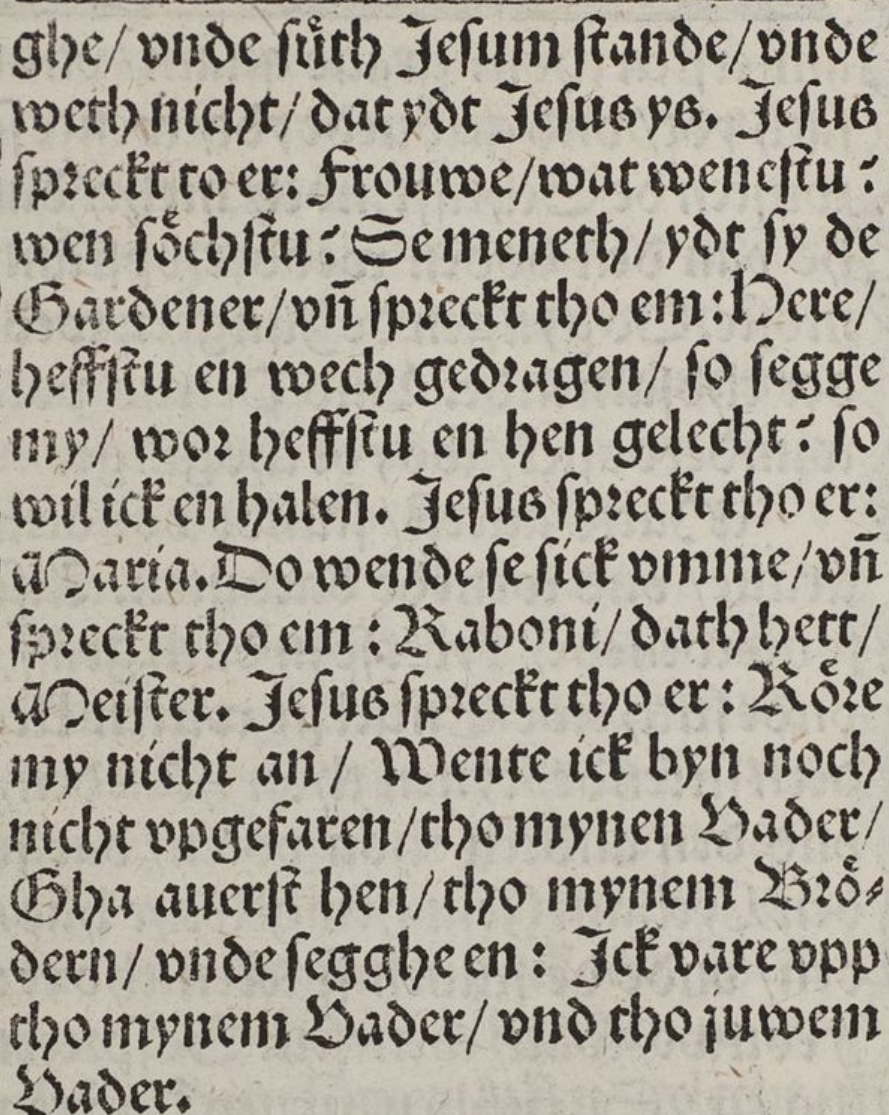 ghe/ vnde ſuͤth Jeſum ſtande/vnde
weth nicht/ dat ydt Jeſus ys. Jeſus
ſpreckt to er: Frouwe/wat weneſtu?
wen ſoͤchſtu? Se meneth/ ydt ſy de
Gardener/vñ ſpreckt tho em: Here/
heffſtu en wech gedragen/ ſo ſegge
my/ wor heffſtu en hen gelecht? ſo
wil ick en halen. Jeſus ſpreckt tho er:
Maria. Do wende ſe ſick vmme/vñ
ſpreckt tho em : Raboni/ dath hett/
Meiſter. Jeſus ſpreckt tho er : Roͤre
my nicht an / Wente ick byn noch
nicht vpgefaren/tho mynen Vader/
Gha auerſt hen/ tho mynem Broͤ⸗
dern/ vnde ſegghe en : Jck vare vpp
tho mynem Vader/ vnd tho juwem
Vader.